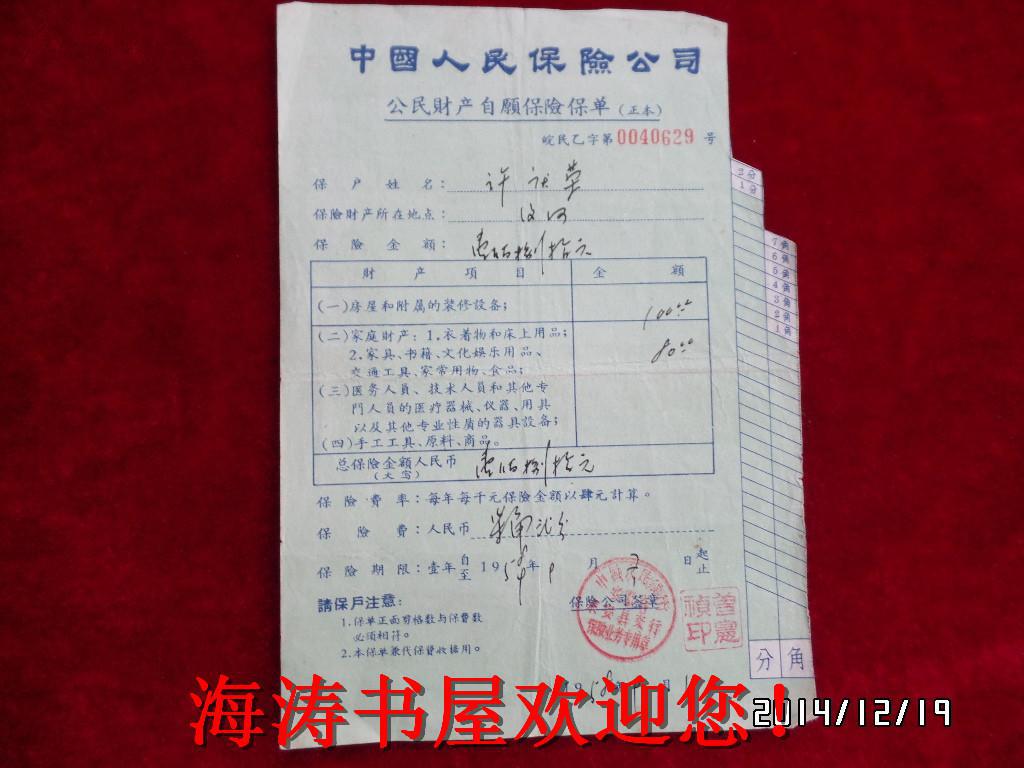 中國人民保險公司
公民財产自願保險保单(正本)
皖民乙字第0040629号
保户姓名:許荣
保險財产所在地点:
保險金額:壹佰捌拾元
財产項目 金額
(一)房屋和附属的装修設备; 100.00
(二)家庭財产:1.衣着物和床上用品; 80.00
2.家具、书籍、文化娱乐用品、
交通工具、家常用物、食品;
(三)医务人員、技术人員和其他专
門人員的医疗器械、仪器、用具
以及其他专业性质的器具設备;
(四)手工工具、原料、商品。
总保險金額人民币 壹佰捌拾元
(大写)
保險費率:每年每千元保險金額以肆元計算。
保險費:人民币 柒角弍分
保險期限:壹年自至1958 59年9月 日起止
請保戶注意:
保險公司签章
1.保单正面剪格数与保費数
必須相符。
2.本保单兼代保費收据用。
保險业务专用章
2分
1分
7角
6角
5角
4角
3角
2角
1角
分 角
1958年 月
海涛书屋欢迎您!
2014/12/19